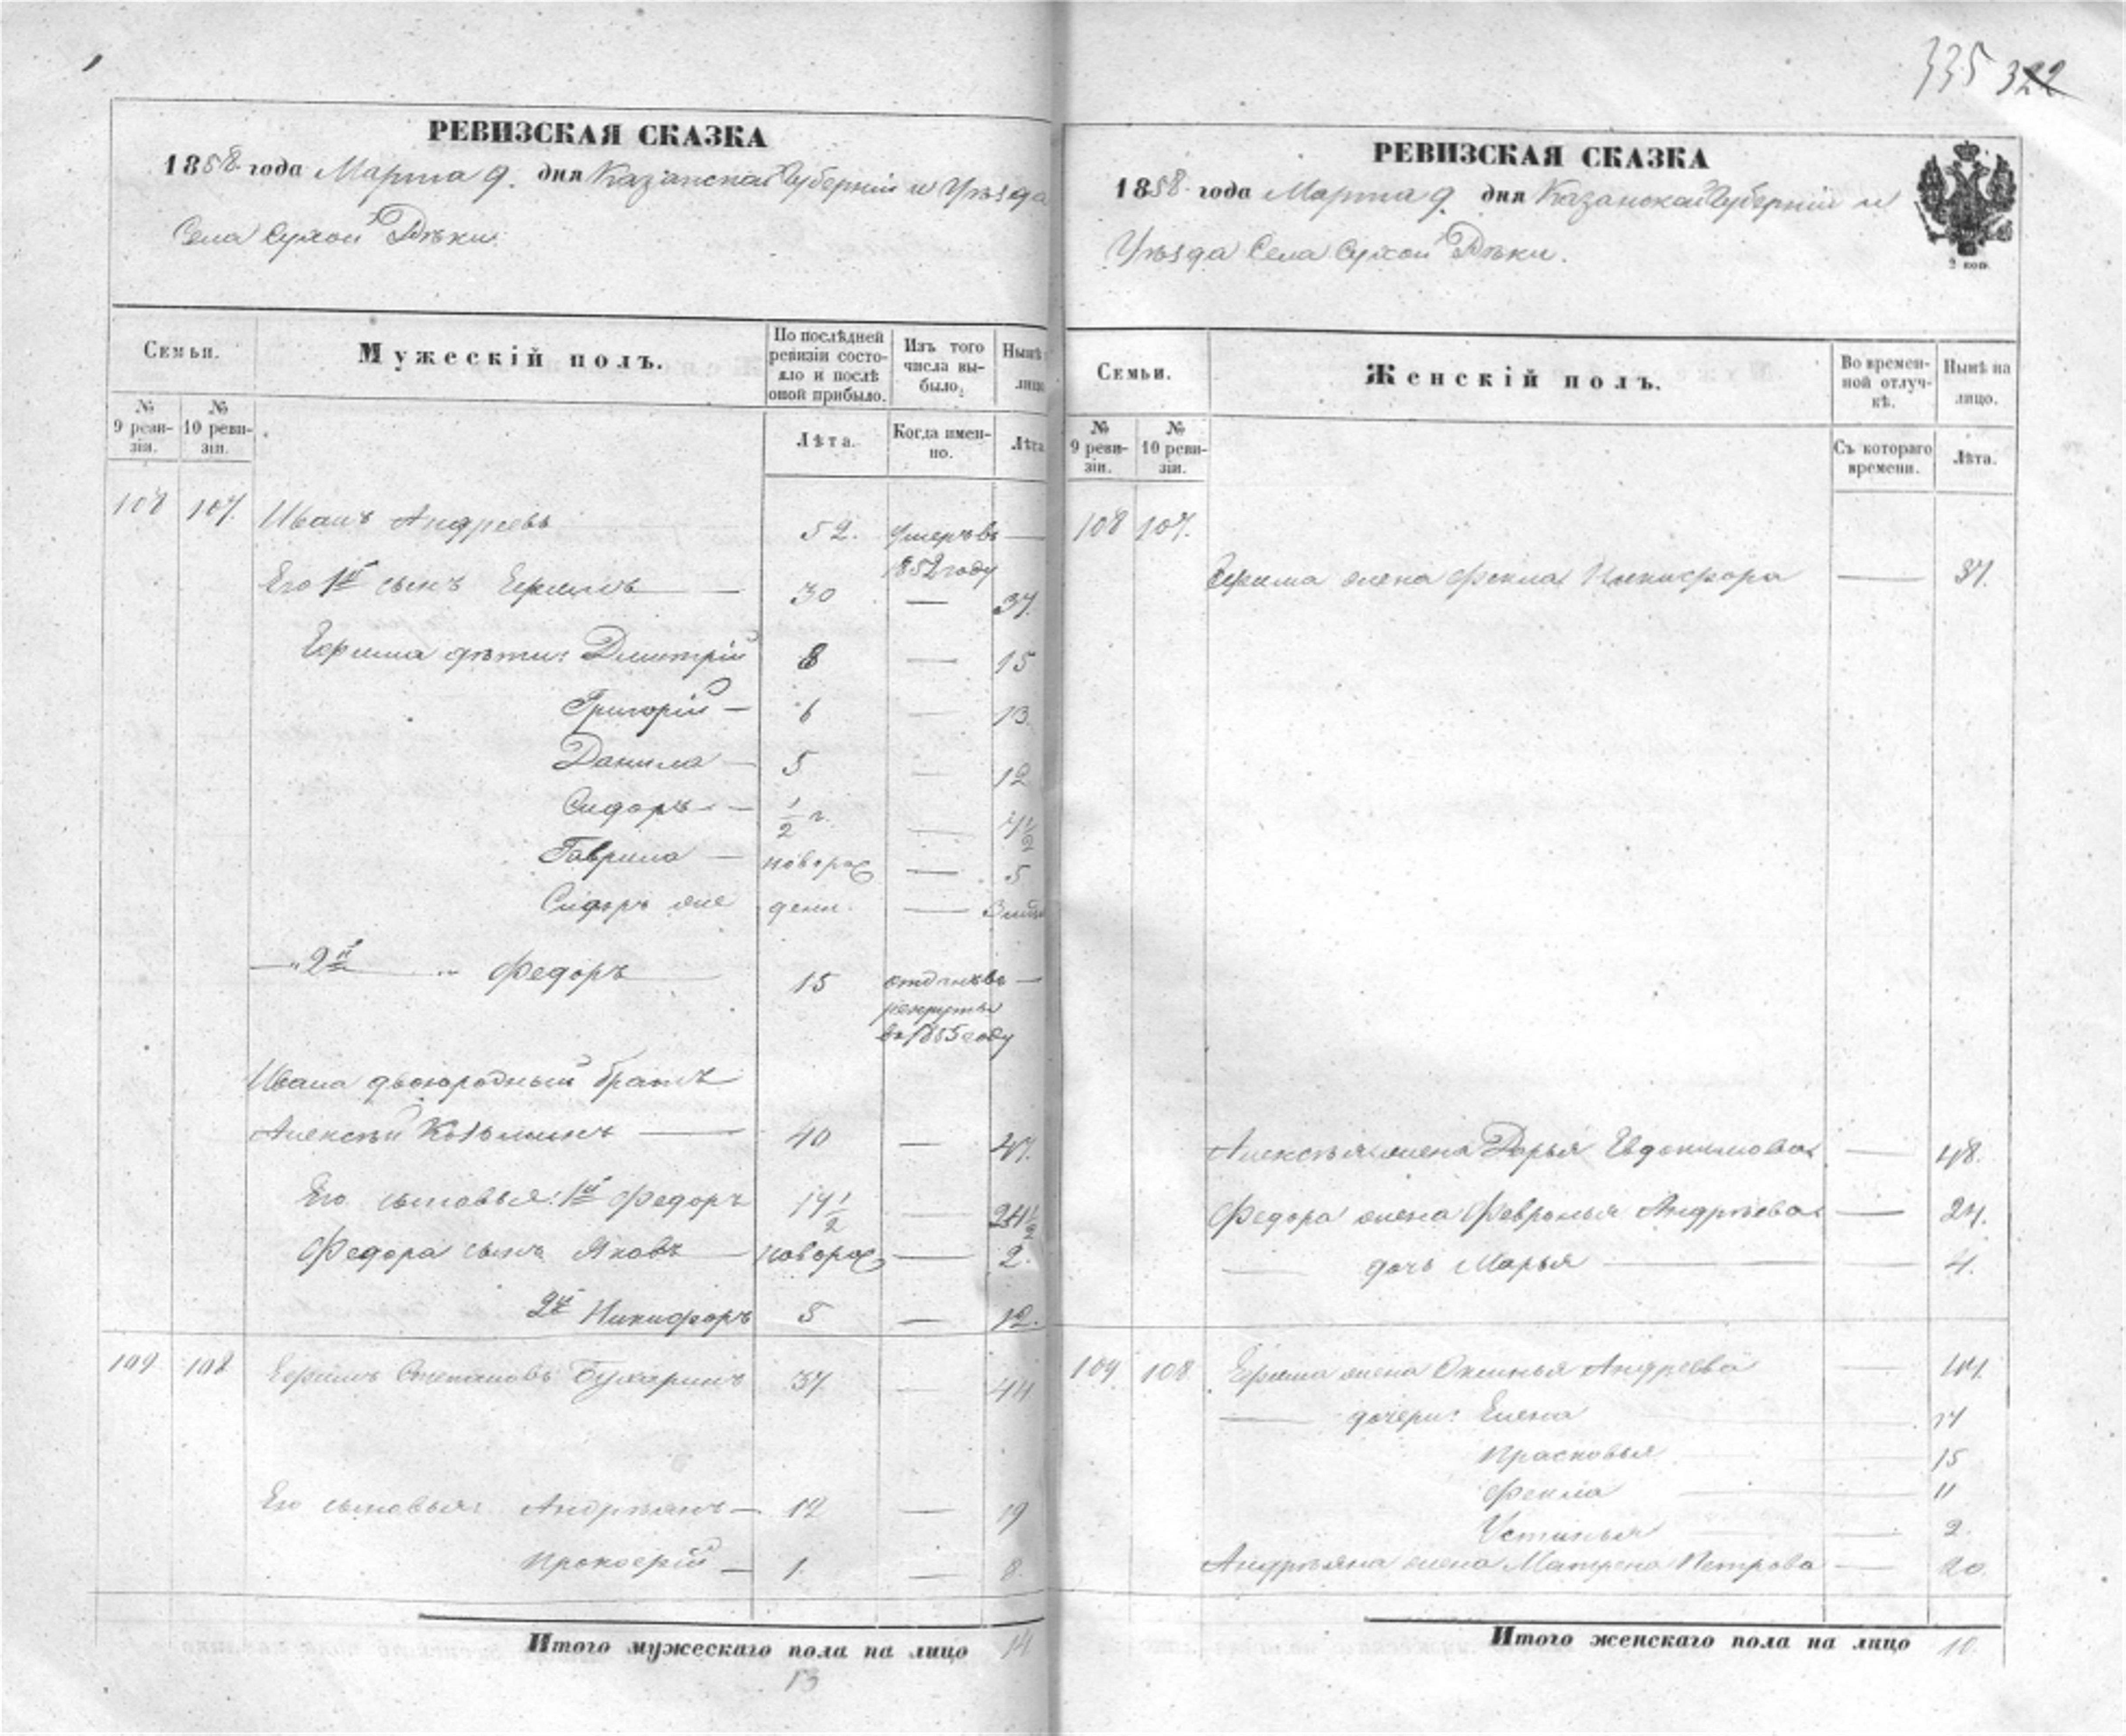 335 322
РЕВИЗСКАЯ СКАЗКА
1858 года Марта 9. дня Казанской Губернии и Уѣзда
Села Сухой Рѣки.
Семьи.
Мужескій полъ.
По послѣдней ревизіи состояло и послѣ оной прибыло.
Изъ того числа выбыло.
Нынѣ
лицо
№ 9 ревизіи.
№ 10 ревизіи.
Лѣта.
Когда именно.
Лѣта
108 107. Иванъ Андреевъ 52. Умеръ въ 1852 году —
Его 1й сынъ Ефимъ — 30 — 37.
Ефима дѣти: Дмитрій 8 — 15
Григорій — 6 — 13.
Данила — 5 — 12
Сидоръ — 1/2 г. — 7 1/2
Гаврила — новорож — 5
Сидоръ же денн. —
— " 2й " Федоръ 15 отданъ въ рекруты въ 1855 году —
Ивана двоюродный братъ
Алексѣй Козьминъ — 40 — 47.
Его сыновья: 1й Федоръ 17 1/2 — 24 1/2
Федора сынъ Яковъ — новорож — 2.
2й Никифоръ 5 — 12.
109 108 Ефимъ Степановъ Бухаринъ 37 — 44
Его сыновья: Андреянъ — 12 — 19
Прокофій — 1. — 8.
Итого мужескаго пола на лицо 14
13
РЕВИЗСКАЯ СКАЗКА
1858 года Марта 9. дня Казанской Губерніи и
Уѣзда Села Сухой Рѣки.
2 коп.
Семьи.
Женскій полъ.
Во временной отлучкѣ.
Нынѣ на лицо.
№ 9 ревизіи.
№ 10 ревизіи.
Съ котораго времени.
Лѣта.
108 107.
Ефима жена Фекла Никифора — 37.
Алексѣя жена Дарья Евдокимова — 48.
Федора жена Февронья Андреева — 24.
— дочь Марья — 4.
109 108 Ефима жена Аксинья Андреева — 44.
— дочери: Елена 17
Прасковья 15
Фекла — 11
Устинья — 2.
Андреяна жена Матрена Петрова — 20.
Итого женскаго пола на лицо 10.